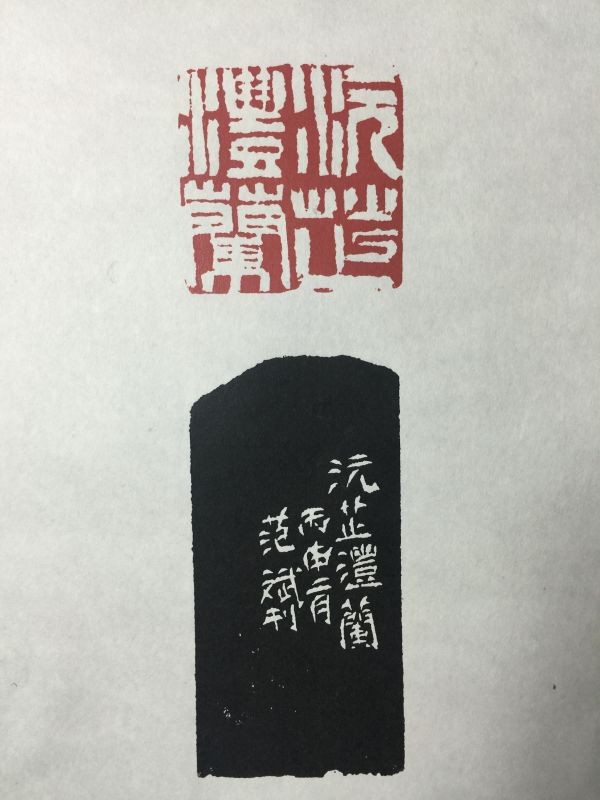 沅芷
澧蘭
沅芷澧蘭
丙申二月
范斌刊